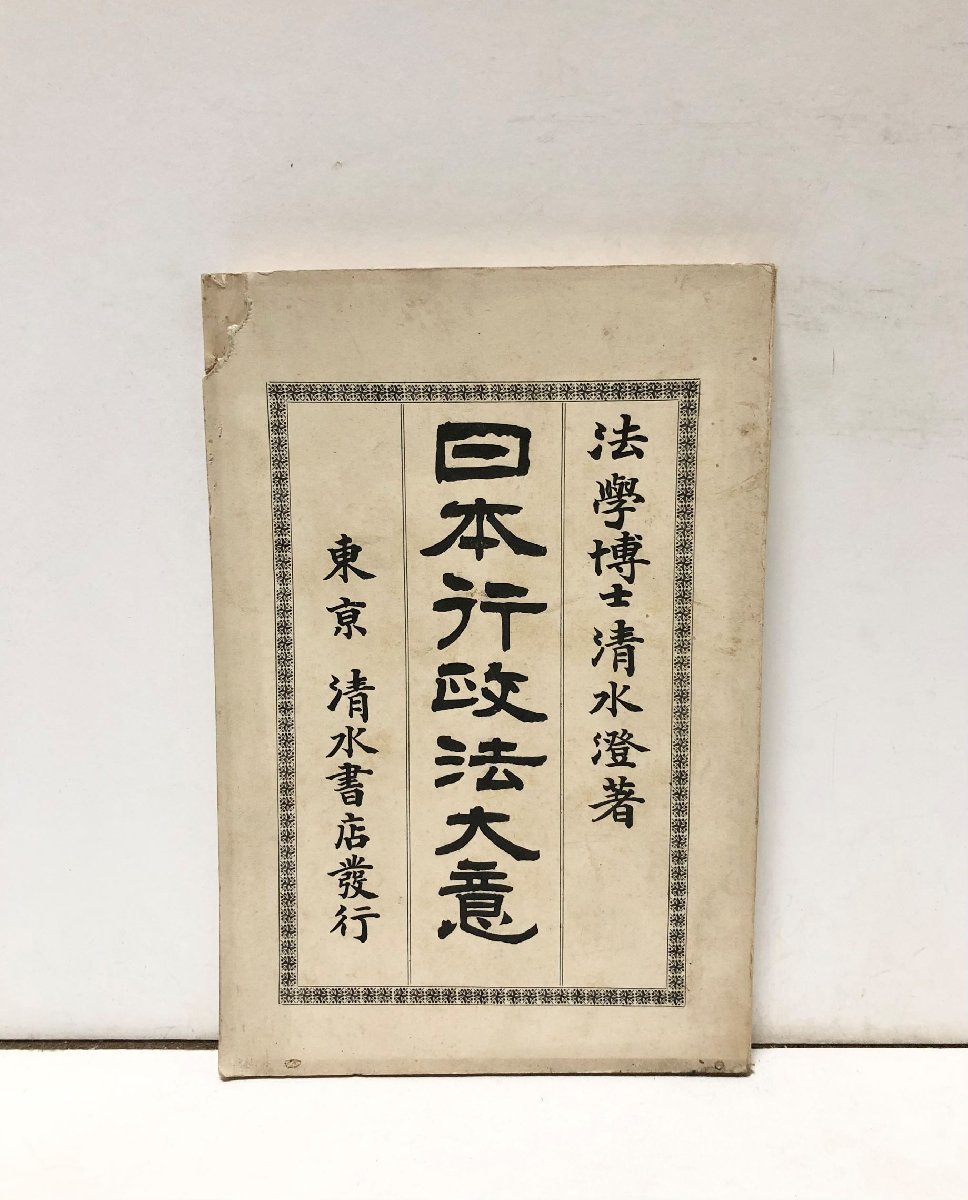 法學博士清水澄著
日本行政法大意
東京 清水書店發行